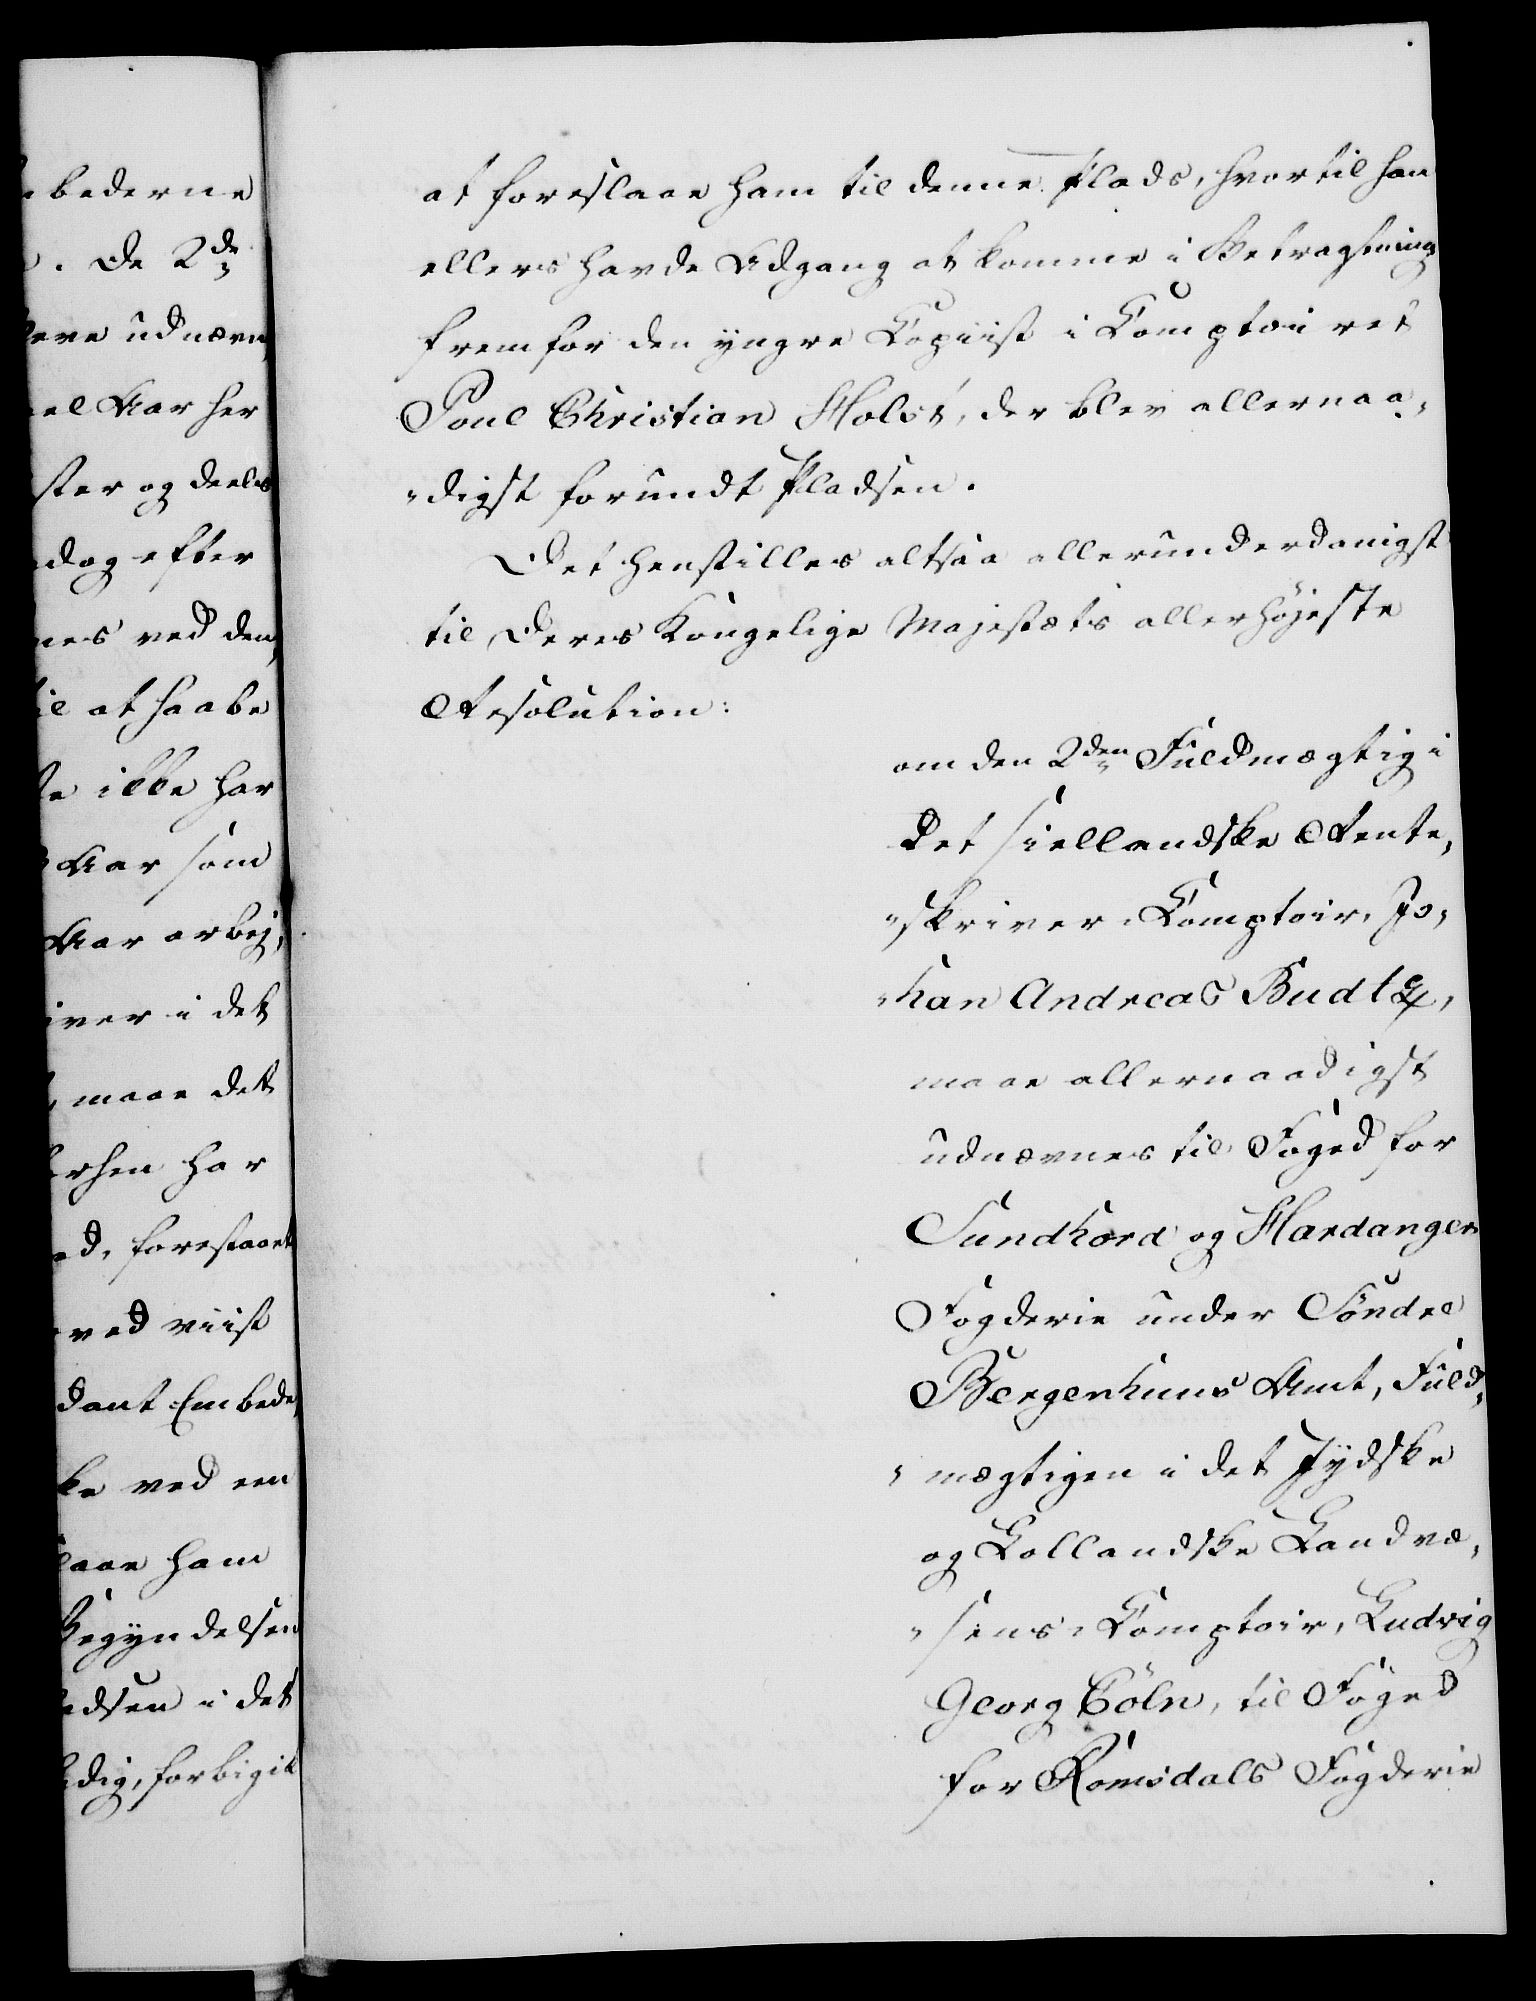 bederne
. De 2de
ere udnævn
el Aar her
ster og deels
dog efter
nes ved den
il at haabe
te ikke har
Aar som
Aar arbej,
iver i det
, maae det
rhen har
ed, forestaaet
ved viist
dant Embede,
ke ved een
laae ham
Begyndelsen
adsen i det
edig, forbigik
at foreslaae ham til denne Plads, hvortil han
ellers havde Adgang at komme i Betragtning
fremfor den yngre Copiist i Comptoiret
Poul Christian Holst, der blev allernaa,
„digst forundt Pladsen.
Det henstilles altsaa allerunderdanigst
til Deres Kongelige Majestæts allerhöjeste
Resolution:
om den 2den Fuldmægtig i
det siellandske Rente,
„skriver-Comptoir, Jo,
„han Andreas Budtz,
maae allernaadigst
udnævnes til Foged for
Sundhord og Hardanger
Fogderie under Söndre
Bergenhuus Amt, Fuld,
„mægtigen i det Jydske
og Lollandske Landvæ,
„sens-Comptoir, Ludvig
Georg Cöln, til Foged
for Romsdals Fogderie